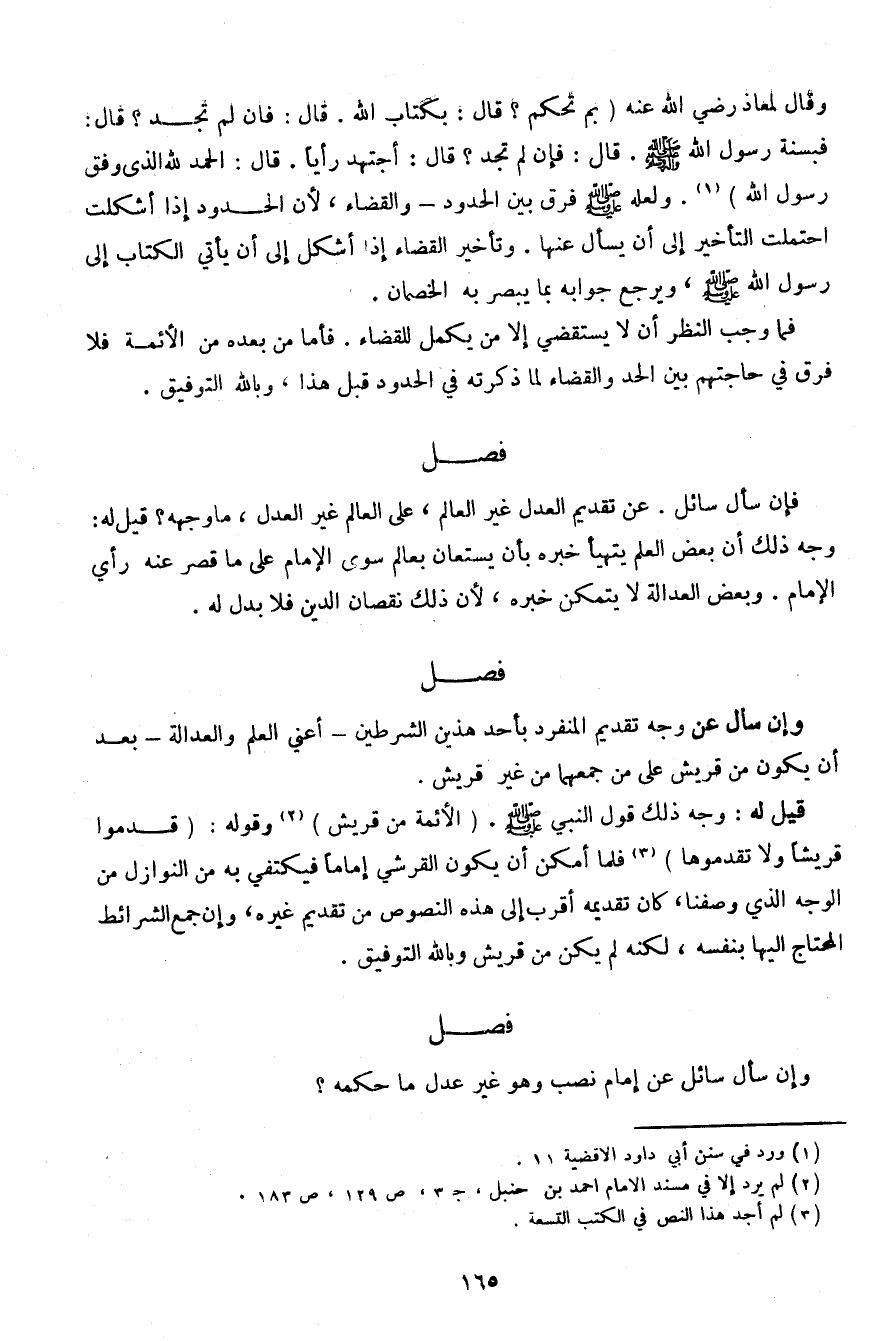 وقال لمعاذ رضي الله عنه ( بم تحكم ؟ قال : بكتاب الله . قال : فان لم تجـــد ؟ قال :
فبسنة رسول الله ﷺ . قال : فإن لم تجد ؟ قال : أجتهد رأياً . قال : الحمد لله الذى وفق
رسول الله ) (١) . ولعله ﷺ فرق بين الحدود – والقضاء ، لأن الحـــدود إذا أشكلت
احتملت التأخير إلى أن يسأل عنها . وتأخير القضاء إذا أشكل إلى أن يأتي الكتاب إلى
رسول الله ﷺ ، ويرجع جوابه بما يبصر به الخصمان .
فما وجب النظر أن لا يستقضي إلا من يكمل للقضاء . فأما من بعده من الأئمـة فلا
فرق في حاجتهم بين الحد والقضاء لما ذكرته في الحدود قبل هذا ، وبالله التوفيق .
فصـــــل
فإن سأل سائل . عن تقديم العدل غير العالم ، على العالم غير العدل ، ماوجهه؟ قيل له :
وجه ذلك أن بعض العلم يتهيأ خبره بأن يستعان بعالم سوى الإمام على ما قصر عنه رأي
الإمام . وبعض العدالة لا يتمكن خبره ، لأن ذلك نقصان الدين فلا بدل له .
فصـــــل
وإن سأل عن وجه تقديم المنفرد بأحد هذين الشرطين – أعني العلم والعدالة – بعـد
أن يكون من قريش على من جمعهما من غير قريش .
قيل له : وجه ذلك قول النبي ﷺ . ( الأئمة من قريش ) (٢) وقوله : ( قـــدموا
قريشاً ولا تقدموها ) (٣) فلما أمكن أن يكون القرشي إماماً فيكتفي به من النوازل من
الوجه الذي وصفنا، كان تقديمه أقرب إلى هذه النصوص من تقديم غيره، وإن جمع الشرائط
المحتاج اليها بنفسه ، لكنه لم يكن من قريش وبالله التوفيق .
فصـــــل
وإن سأل سائل عن إمام نصب وهو غير عدل ما حكمه ؟
(١) ورد في سنن أبي داود الاقضية ١١ .
(٢) لم يرد إلا في مسند الامام احمد بن حنبل ، جـ ٣ ، ص ١٢٩ ، ص ١٨٣ .
(٣) لم أجد هذا النص في الكتب التسعة .
١٦٥